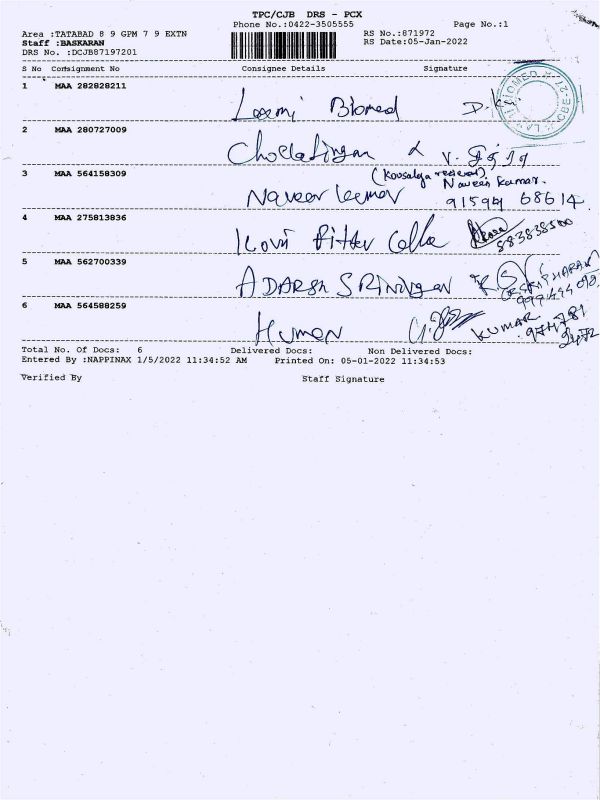 TPC/CJB DRS - PCX
Phone No.:0422-3505555 Page No.:1
Area :TATABAD 8 9 GPM 7 9 EXTN RS No.:871972
Staff :BASKARAN RS Date:05-Jan-2022
DRS No. :DCJB87197201
S No Consignment No Consignee Details Signature
1 MAA 282828211 Laxmi Biomed
2 MAA 280727009
3 MAA 564158309 Naveen kumar Naveen kumar.
91594 68614
4 MAA 275813836
5 MAA 562700339 ADARSH
6 MAA 564588259 Human KUMAR
Total No. Of Docs: 6 Delivered Docs: Non Delivered Docs:
Entered By :NAPPINAX 1/5/2022 11:34:52 AM Printed On: 05-01-2022 11:34:53
Verified By Staff Signature